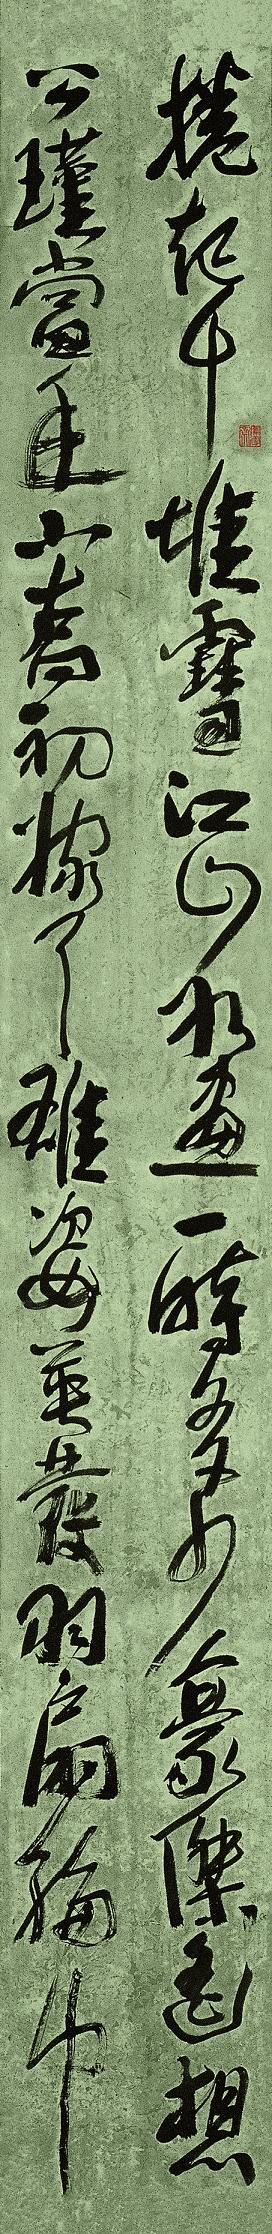 捲起千堆雪江山如畫一時多少豪傑遙想
公瑾當年小喬初嫁了雄姿英發羽扇綸巾